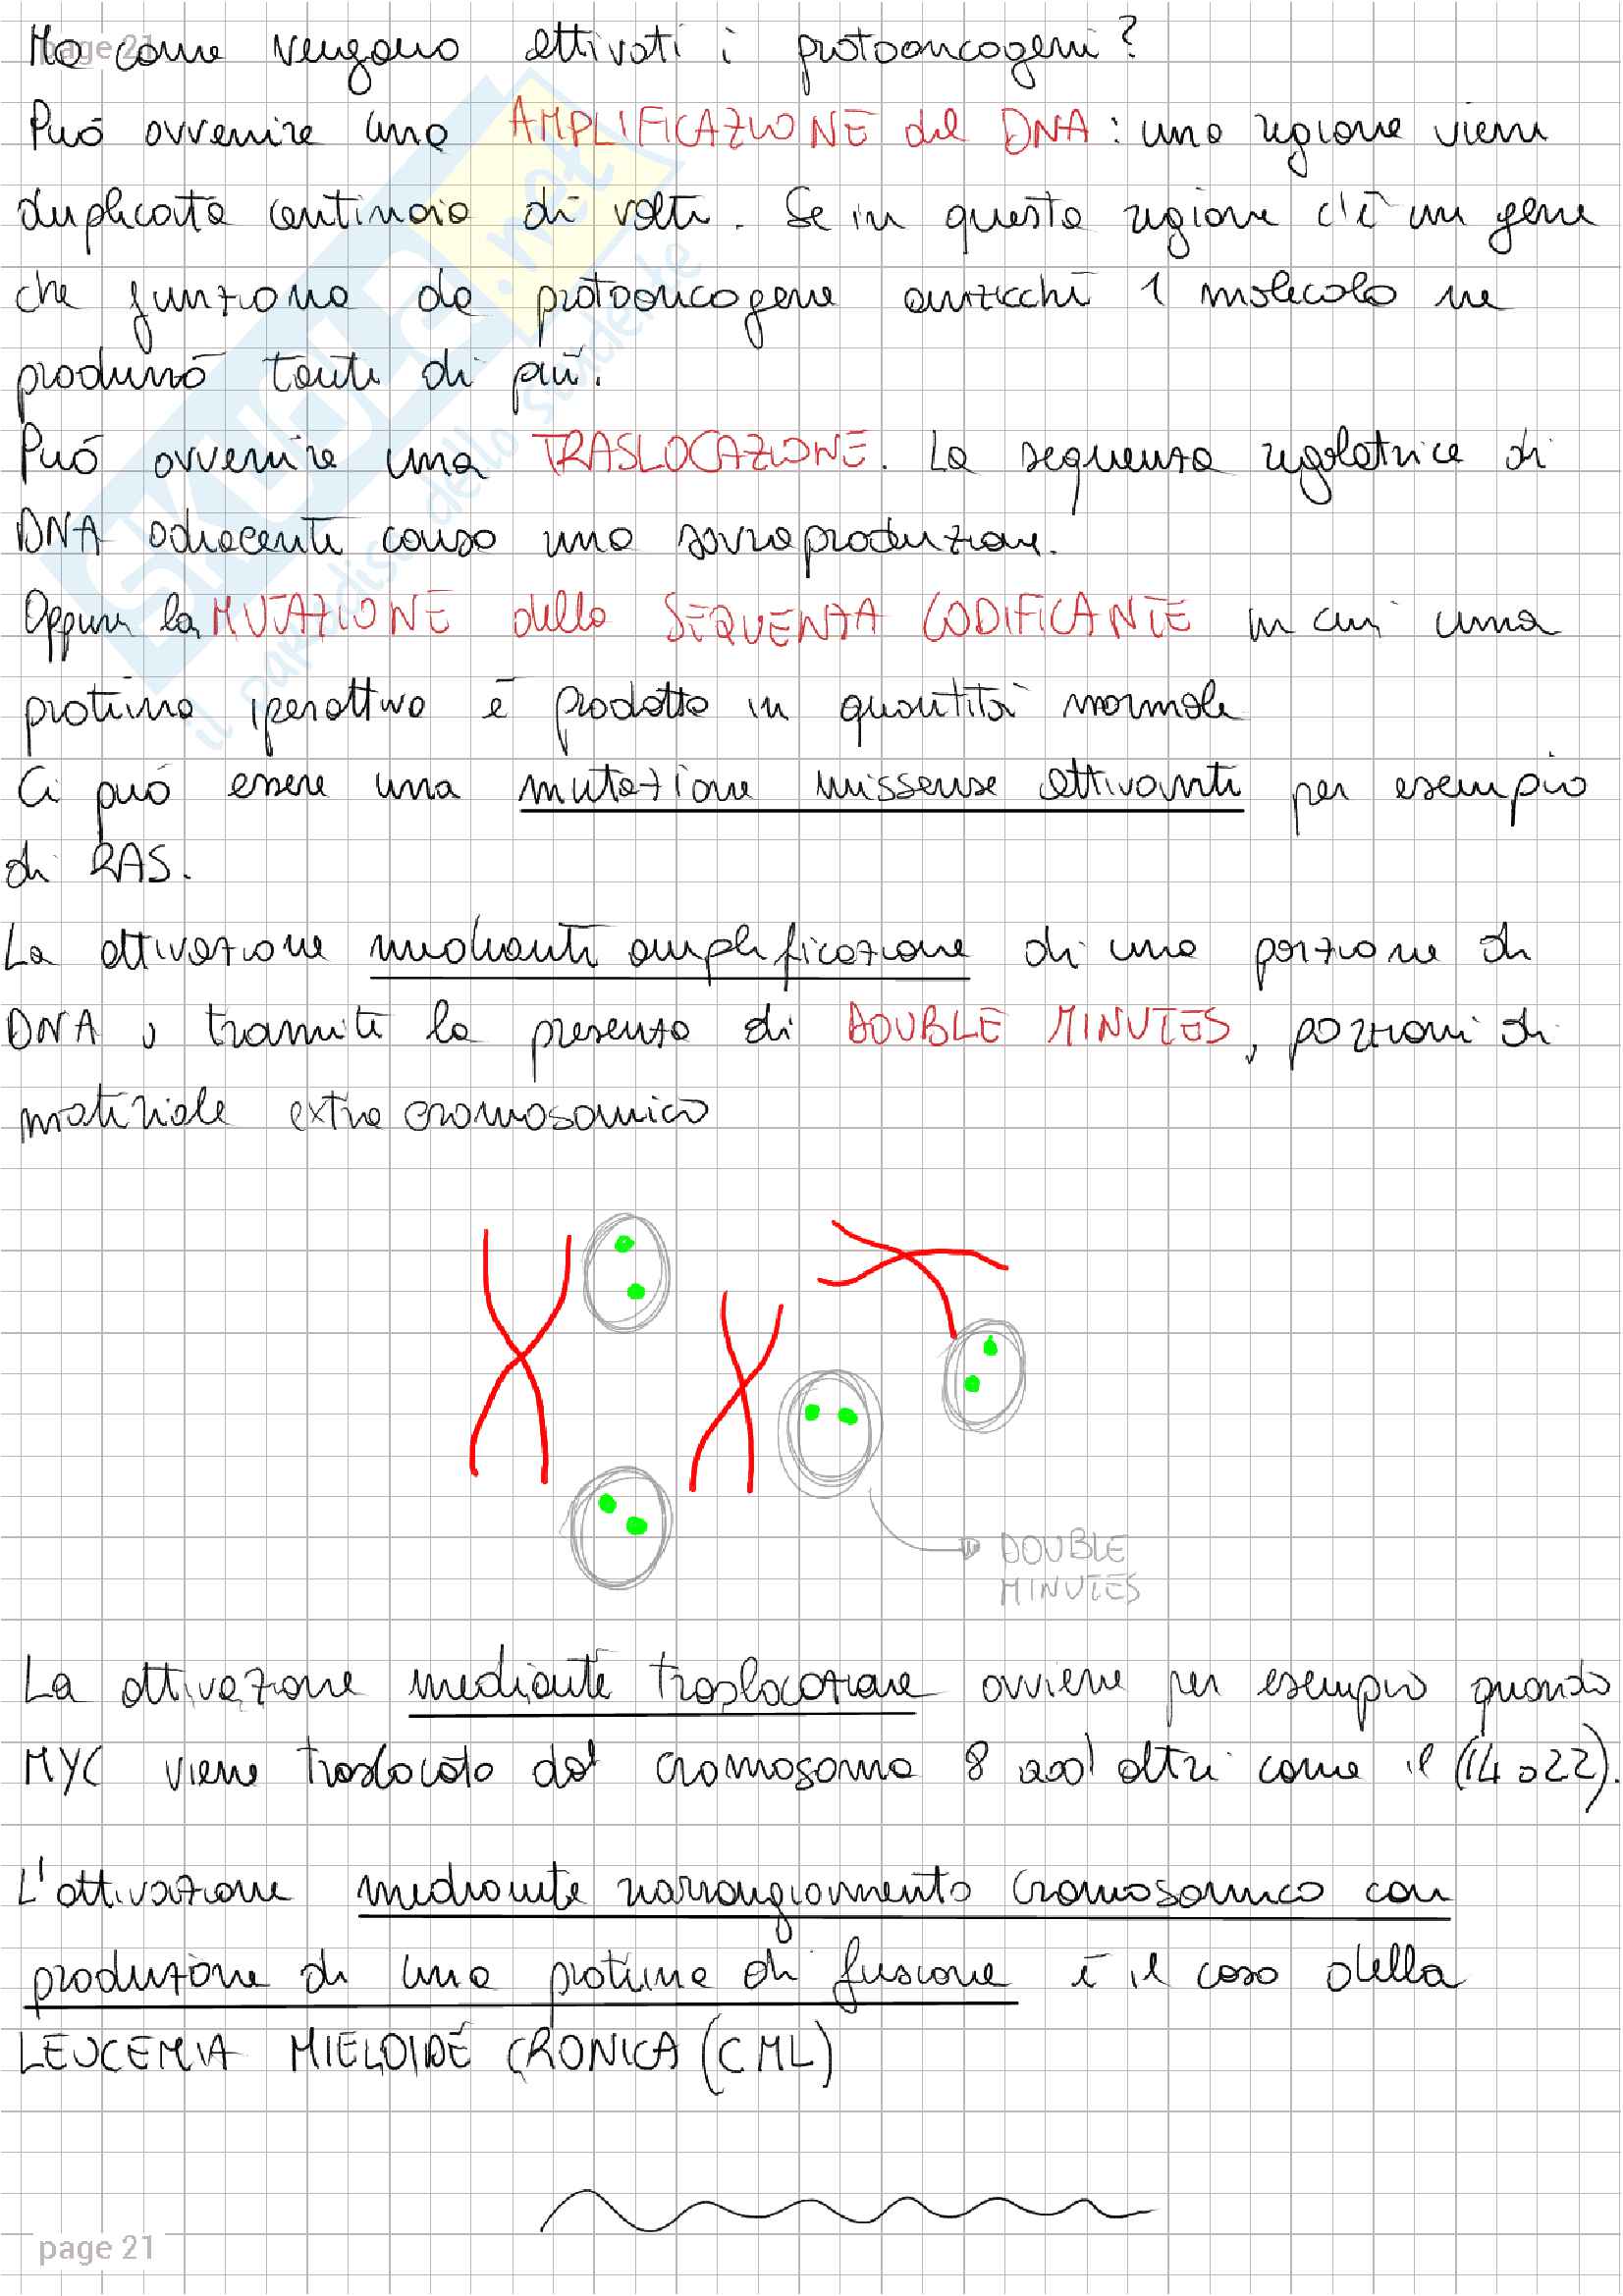 page 21
Ma come vengono attivati i protooncogeni?
Può avvenire una AMPLIFICAZIONE del DNA: una regione viene
duplicata centinaia di volte. Se in questa regione c'è un gene
che funziona da protooncogene anzicchè 1 molecola ne
produrrò tante di più.
Può avvenire una TRASLOCAZIONE. La sequenza regolatrice di
DNA adiacente causa una sovraproduzione.
Oppure la MUTAZIONE della SEQUENZA CODIFICANTE in cui una
proteina iperattiva è prodotta in quantità normale
Ci può essere una mutazione missense attivante per esempio
di RAS.
La attivazione mediante amplificazione di una porzione di
DNA o tramite la presenza di DOUBLE MINUTES, porzioni di
materiale extra cromosomico
DOUBLE
MINUTES
La attivazione mediante traslocazione avviene per esempio quando
MYC viene traslocato dal cromosoma 8 ad altri come il (14 o 22).
L'attivazione mediante riarrangiamento cromosomico con
produzione di una proteina di fusione è il caso della
LEUCEMIA MIELOIDE CRONICA (CML)
page 21
SKUOLA.net
il paradiso dello studente